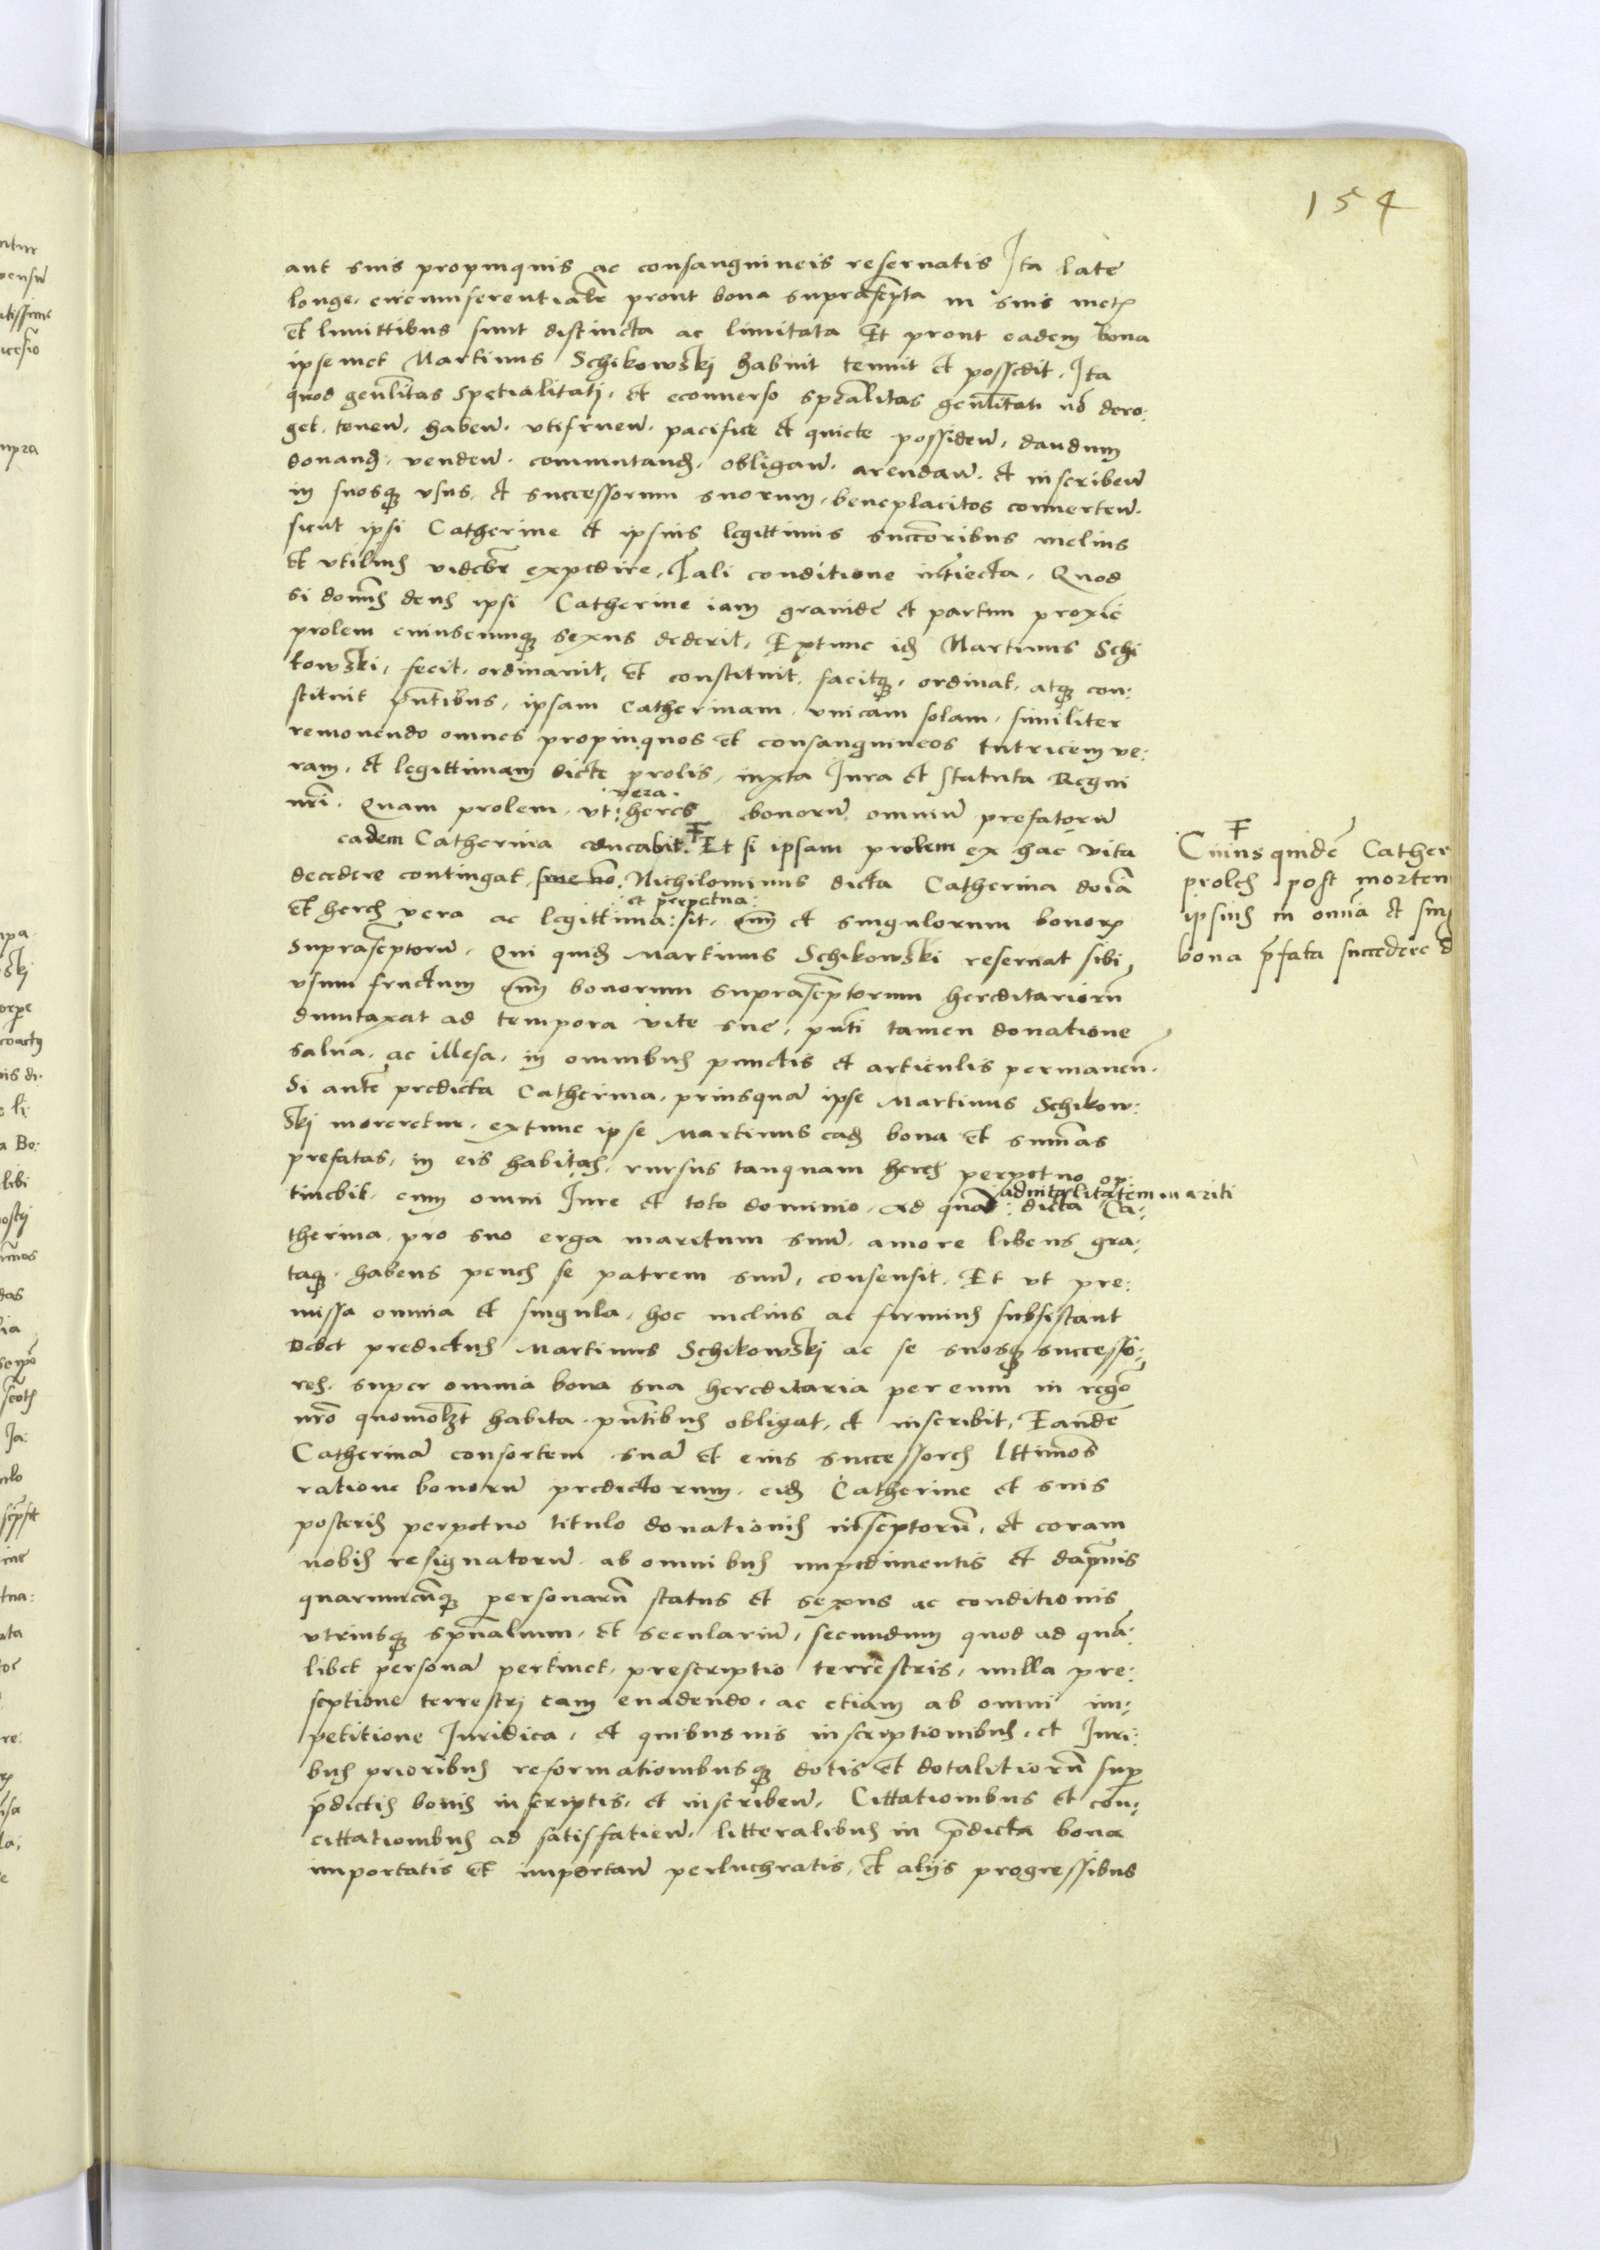 154
aut suis propinquis ac consanguineis reseruatis Ita late
longe, circumferentialr̄ prout bona suprascp̄ta in suis metꝭ
et limittibus sunt distincta ac limitata Et prout eadem bona
ipsemet Martinus Schikowskj habuit tenuit et possedit, Ita
quod gen̄litas spetialitatj, et econuerso spēalitas gen̄litati nō dero:
get, tenen̄, haben̄, vtifruen̄, pacifice et quiete possiden̄, dandum
donand, venden̄, commutand, obligan̄, arendan̄, et inscriben̄
in suosqȝ vsus, et successorum suorum, beneplacitos conuerten̄,
sicut ipsi Catherine et ipsius legittimis succōribus melius
et vtilius videbr̄ expedire, Tali conditione int̄iecta, Quod
si domn̄s deus ipsi Catherine iam grauide et partui proxiē
prolem cuiuscumqȝ sexus dederit, Extunc id Martinus Schi
kowski, fecit, ordinauit, et constituit, facitqȝ, ordinat, atqȝ con:
stituit pn̄tibus, ipsam Catherinam, vnicam solam, similiter
remouendo omnes propinquos et consanguineos tutricem ve:
ram, et legittimam dicte prolis, iuxta Iura et statuta Regni
nrī, Quam prolem, vt: heres bonorū omniū prefatorū
vera
eadem Catherina educabit. Et si ipsam prolem ex hac vita
decedere contingat, siue nō: Nichilominus dicta Catherina doīa
et heres vera ac legittima: sit, oīm et singulorum bonorꝭ
et perpetua:
suprascptorū, Qui quid Martinus Schikowski reseruat sibi
vsum fructum oīm bonorum suprascptorum hereditariorū
dumtaxat ad tempora vite sue, pn̄ti tamen donatione
salua, ac illesa, in omnibus punctis et articulis permanen̄.
Si antē predicta Catherina, priusquā ipse Martinus Schikow:
ski moreretur, extunc ipse Martinus ead bona et summas
prefatas, in eis habitas, rursus tanquam heres perpetuo op:
tinebit, cum omni Iure et toto dominio, Ad quā: dicta Ca:
aduitalitatem mariti
therina, pro suo erga maritum suū, amore libens gra:
taqȝ habens penes se patrem suū, consensit, Et vt pre:
missa omnia et singula, hoc melius ac firmius subsistant
Debet predictus Martinus Schikowski ac se suosqȝ successo:
res, super omnia bona sua hereditaria per eum in regō
nrō quomolȝt habita pn̄tibus obligat, et inscribit, Eandē
Catherinā consortem suā et eius successores lttimos
ratione bonorū predictorum, eid Catherine et suis
posteris perpetuo titulo donationis inscptorū, et coram
nobis resignatorū ab omnibus impedimentis et dāpnis
quarumcūqȝ personarū status et sexus ac conditionis
vtriusqȝ spn̄alium, et seculariū, secundum quod ad quā:
libet personā pertinet, prescriptio terrestris, nulla pre:
scptione terrestrj eam euadendo, ac etiam ab omni im:
petitione Iuridica, et quibusuis inscriptionibus, et Iuri:
bus prioribus reformationibusqȝ dotis et dotalitiorū sup
p̄dictis bonis inscriptis, et inscriben̄, Cittationibus et con:
cittationibus ad satisfatien̄, litteralibus in p̄dicta bona
importatis et importan̄ perluchratis, et alijs progressibus
Cuius quidē Cather
proles post mortem
ipsius in omīa et sing
bona p̄fata succedere d